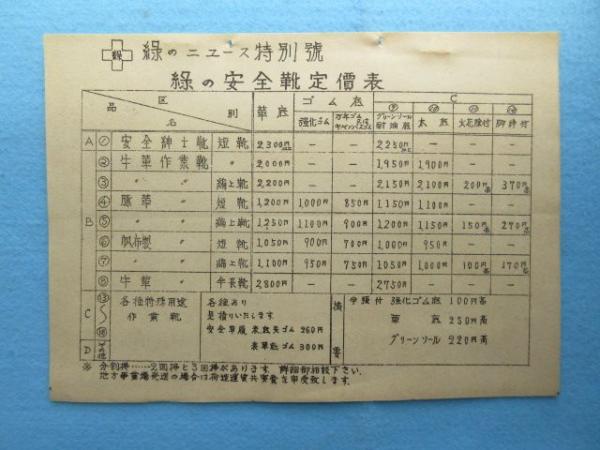 緑のニュース特別號
緑の安全靴定價表
品 区 名 別 革底 ゴム底 C
強化ゴム グリーンソール耐油底 太鼓
A ① 安全紳士靴 短靴 2,300円 — — 2,250円 — — —
② 牛革作業靴 〃 2,000円 — — 1,950円 1,900円 — —
③ 〃 〃 編上靴 2,200円 — — 2,150円 2,100円 200円高 370円高
B ④ 豚革 〃 短靴 1,200円 1,000円 850円 1,150円 1,100円 — —
⑤ 〃 〃 編上靴 1,250円 1,100円 900円 1,200円 1,150円 150円高 270円高
⑥ 帆布製 〃 短靴 1,050円 900円 700円 1,000円 950円 — —
⑦ 〃 〃 編上靴 1,100円 950円 750円 1,050円 1,000円 100円高 170円高
⑧ 牛革 〃 半長靴 2,800円 — — 2,750円 — — —
C ⑬〜⑱ 各種特殊用途作業靴
D その他
各種あり
見積りいたします
安全草履 表裁矢ゴム 260円
表革舵ゴム 300円
摘要
強化ゴム底 100円高
革底 250円高
グリーンソール 220円高
※ 分割拂……2回拂と3回拂があります。詳細御相談下さい。
地方車業場発送の場合は荷造運賃共実費を申受致します。